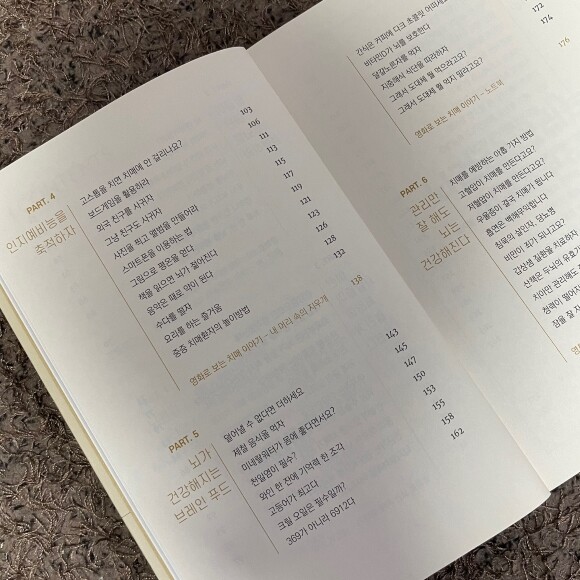 PART. 4
인지예비능을
축적하자
고스톱을 치면 치매에 안 걸리나요? 103
보드게임을 활용하라 106
외국 친구를 사귀자 111
그냥 친구도 사귀자 113
사진을 찍고 앨범을 만들어라 115
스마트폰을 이용하는 법 117
그림으로 평온을 얻다 119
책을 읽으면 뇌가 젊어진다 121
음악은 때로 약이 된다 123
수다를 떨자 126
요리를 하는 즐거움 128
중증 치매환자의 놀이방법 132
영화로 보는 치매 이야기 - 내 머리 속의 지우개 138
PART. 5
뇌가
건강해지는
브레인 푸드
덜어낼 수 없다면 더하세요 143
제철 음식을 먹자 145
미네랄워터가 몸에 좋다면서요? 147
천일염이 필수? 150
와인 한 잔에 기억력 한 조각 153
고등어가 최고다 155
크릴 오일은 필수일까? 158
369가 아니라 6912다 162
간식은 커피에 다크 초콜릿
비타민D가 뇌를 보호한다
달걀노른자를 먹자
지중해식 식단을 따라하자
그래서 도대체 뭘 먹으라고요? 172
그래서 도대체 뭘 먹지 말라고요? 174
영화로 보는 치매 이야기 - 노트북 176
PART. 6
관리만
잘 해도
뇌는
건강해진다
치매를 예방하는 아홉 가지 방법
고혈압이 치매를 만든다고요?
저혈압이 치매를 만든다고요?
우울증이 결국 치매가 됩니다
흡연은 백해무익합니다
침묵의 살인자, 당뇨병
비만이 죄가 되나고요?
갑상샘 질환을 치료하자
산책은 두뇌의
치아만 관리해도
청력이 떨어지
잠을 잘